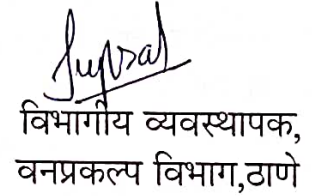 विभागीय व्यवस्थापक,
वनप्रकल्प विभाग,ठाणे